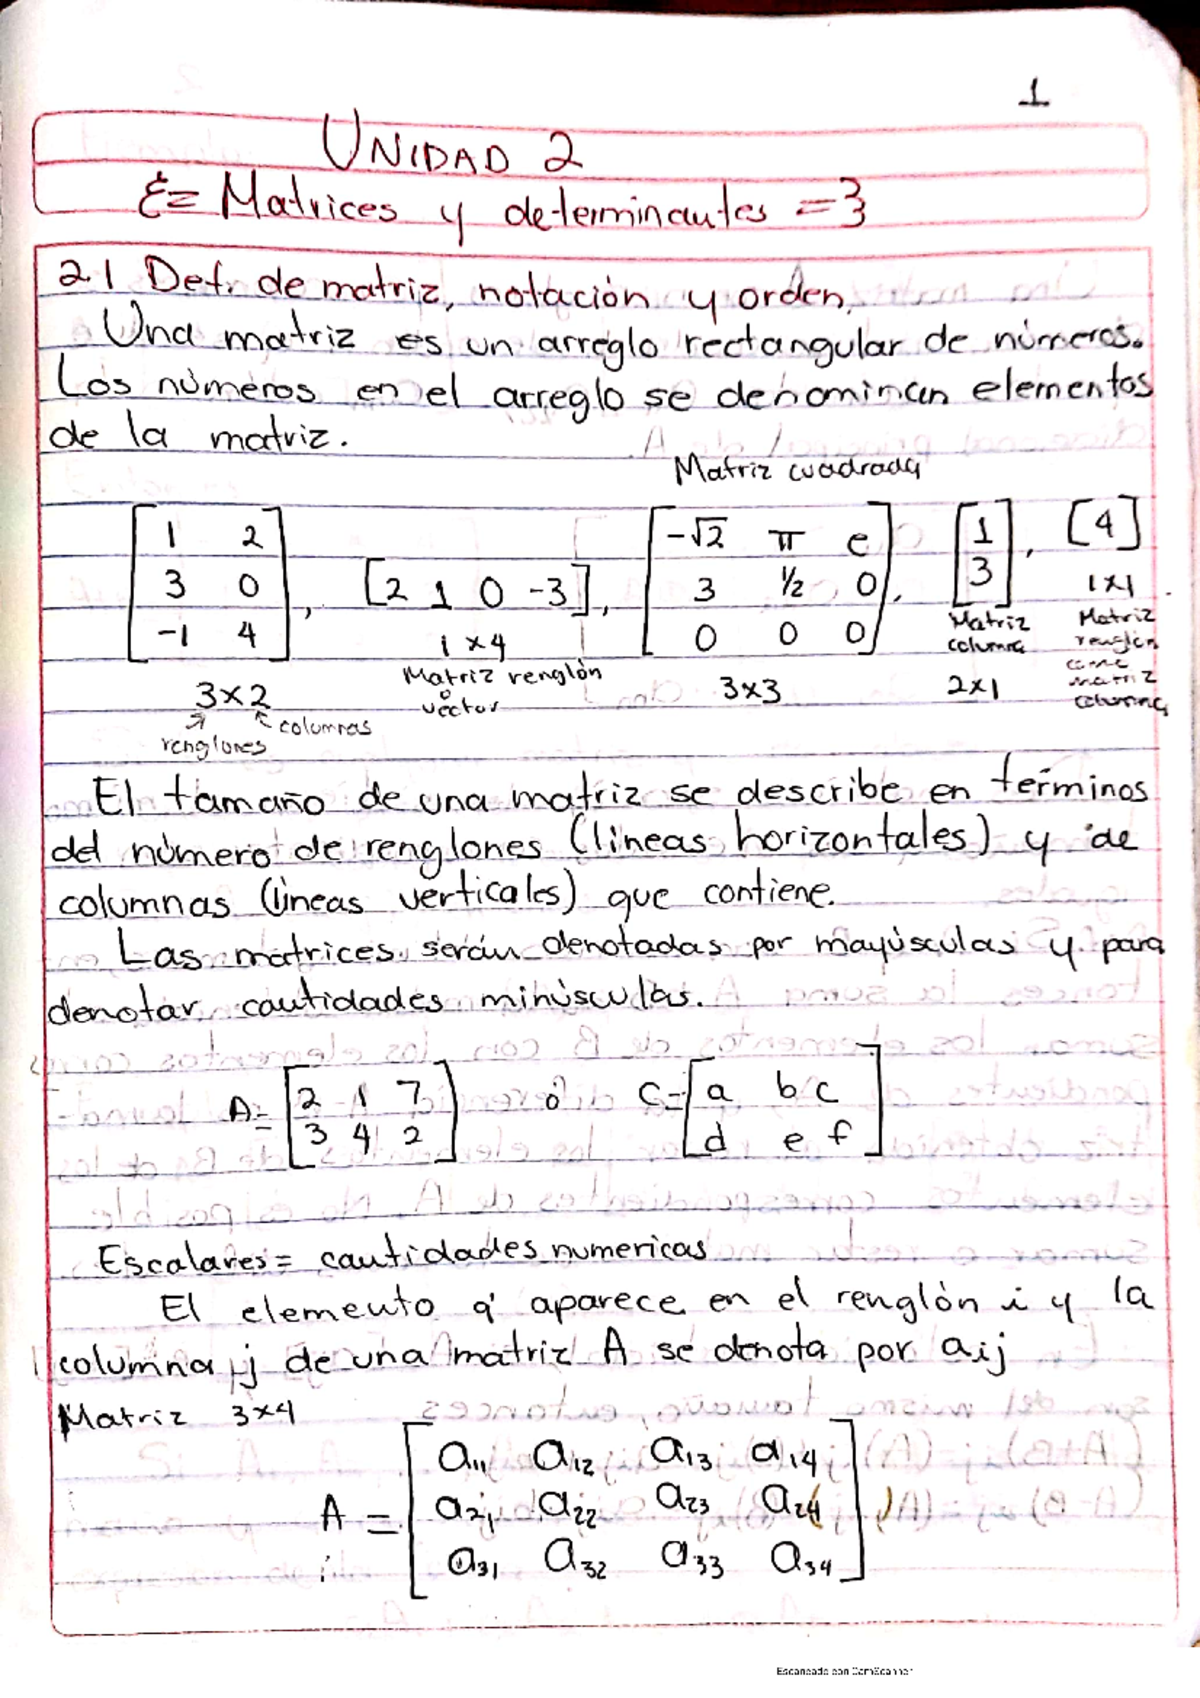 1
UNIDAD 2
Matrices y determinantes
2.1 Def. de matriz, notación y orden.
Una matriz es un arreglo rectangular de números.
Los números en el arreglo se denominan elementos
de la matriz.
Matriz cuadrada
[1 2; 3 0; -1 4], [2 1 0 -3], [-√2 π e; 3 1/2 0; 0 0 0], [1; 3], [4]
3x2 1x4 3x3 2x1 1x1
renglones columnas
Matriz renglón o vector
Matriz columna
Matriz renglón como matriz columna
El tamaño de una matriz se describe en términos
del número de renglones (líneas horizontales) y de
columnas (líneas verticales) que contiene.
Las matrices serán denotadas por mayúsculas y para
denotar cantidades minúsculas.
A= [2 1 7; 3 4 2] ó C= [a b c; d e f]
Escalares = cantidades numericas
El elemento q' aparece en el renglón i y la
columna j de una matriz A se denota por aij
Matriz 3x4
A = [a11 a12 a13 a14; a21 a22 a23 a24; a31 a32 a33 a34]
Escaneado con CamScanner